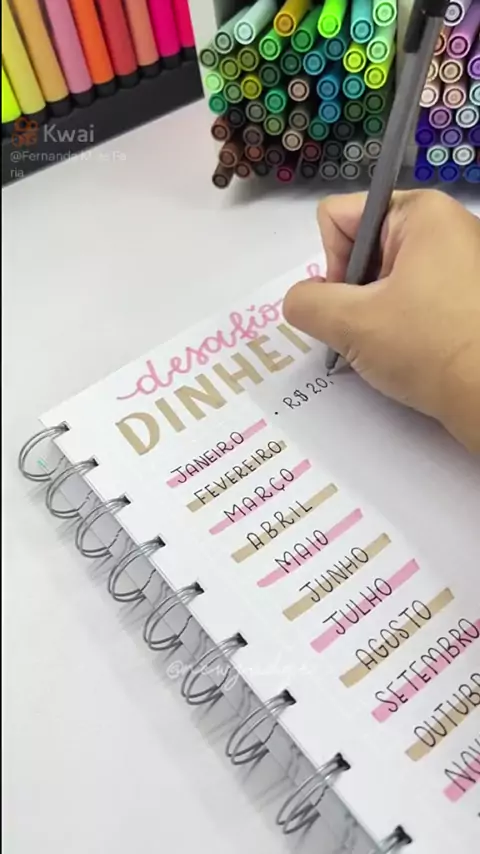 Kwai
desafio
DINHEI
• R$ 20,
JANEIRO
FEVEREIRO
MARÇO
ABRIL
MAIO
JUNHO
JULHO
AGOSTO
SETEMBRO
OUTUBR
NOV